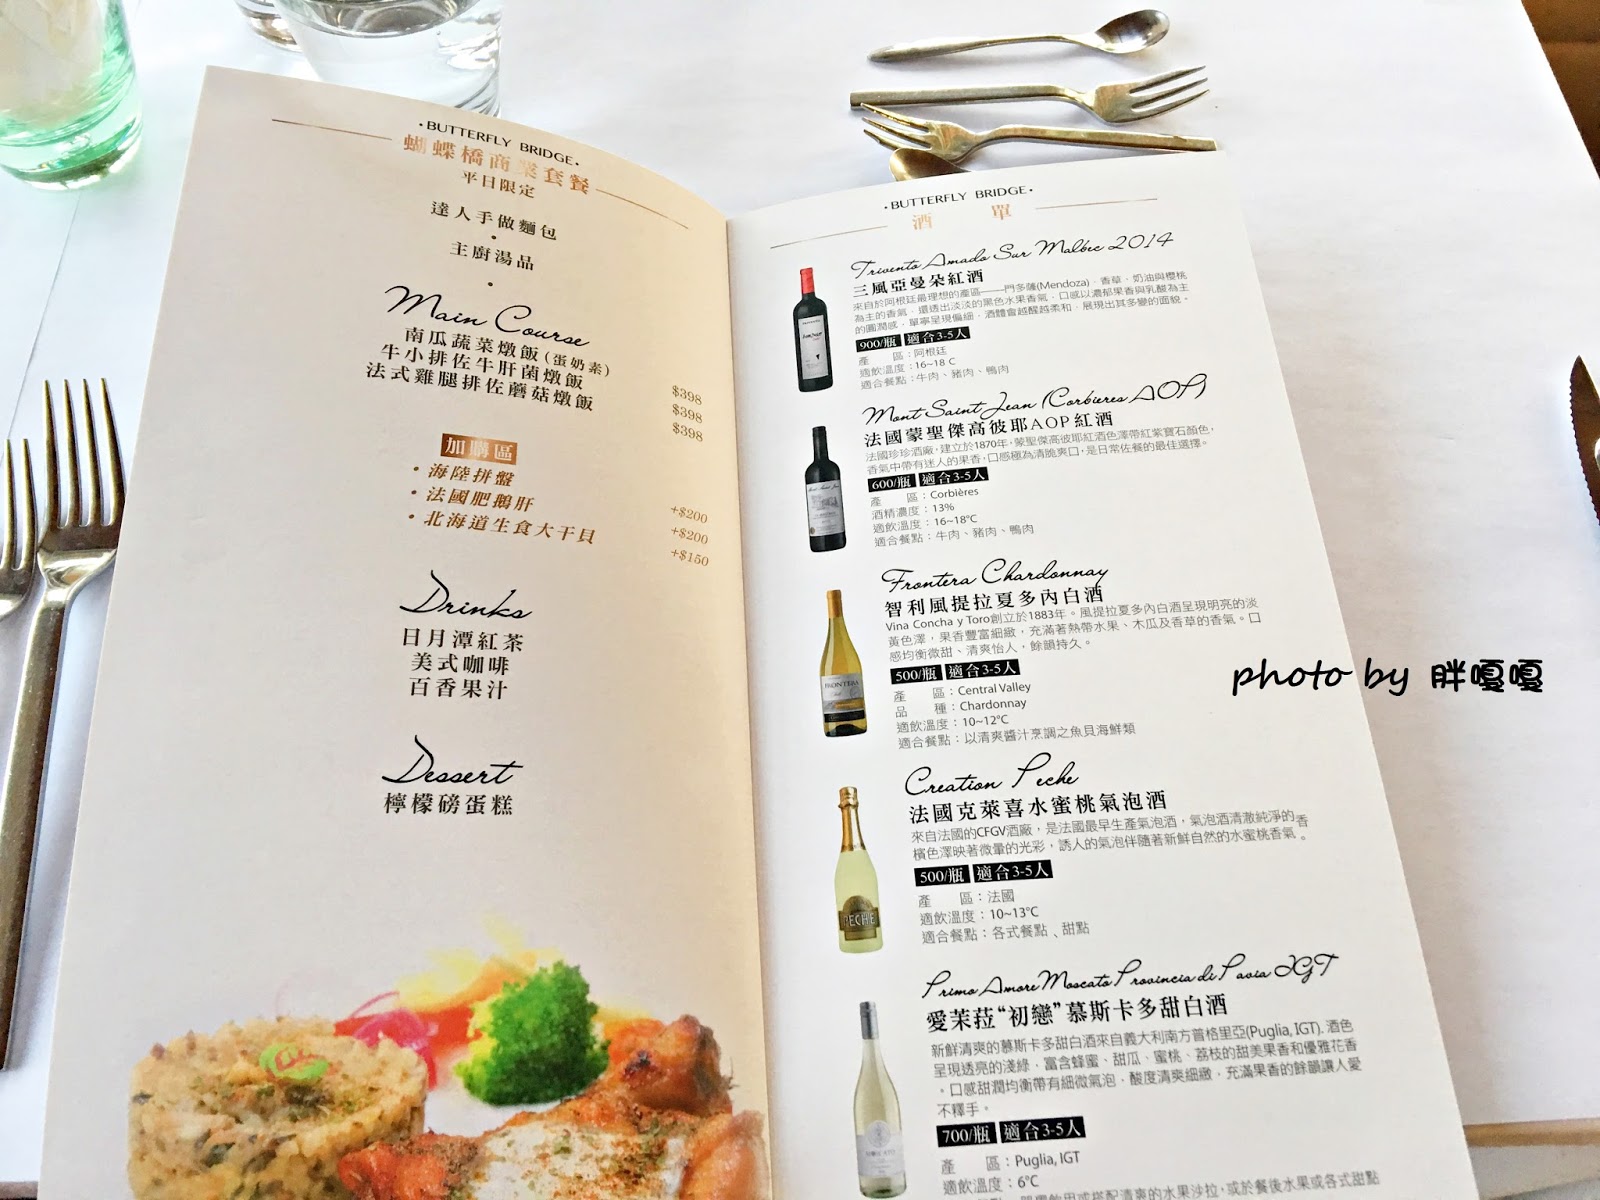 ·BUTTERFLY BRIDGE·
蝴蝶橋商業套餐
平日限定
達人手做麵包
·
主廚湯品
·
Main Course
南瓜蔬菜燉飯(蛋奶素) $398
牛小排佐牛肝菌燉飯 $398
法式雞腿排佐蘑菇燉飯 $398
加購區
·海陸拼盤 +$200
·法國肥鵝肝 +$200
·北海道生食大干貝 +$150
Drinks
日月潭紅茶
美式咖啡
百香果汁
Dessert
檸檬磅蛋糕
·BUTTERFLY BRIDGE·
酒 單
Trivento Amado Sur Malbec 2014
三風亞曼朵紅酒
來自於阿根廷最理想的產區——門多薩(Mendoza)，香草，奶油與櫻桃
為主的香氣，還透出淡淡的黑色水果香氣，口感以濃郁果香與乳酸為主
的圓潤感，單寧呈現偏細，酒體會越醒越柔和，展現出其多變的面貌。
900/瓶 適合3-5人
產 區：阿根廷
適飲溫度：16~18 C
適合餐點：牛肉、豬肉、鴨肉
Mont Saint Jean (Corbieres AOP)
法國蒙聖傑高彼耶AOP紅酒
法國珍珍酒廠，建立於1870年，蒙聖傑高彼耶紅酒色澤帶紅紫寶石顏色，
香氣中帶有迷人的果香，口感極為清脆爽口，是日常佐餐的最佳選擇。
600/瓶 適合3-5人
產 區：Corbières
酒精濃度：13%
適飲溫度：16~18°C
適合餐點：牛肉、豬肉、鴨肉
Frontera Chardonnay
智利風提拉夏多內白酒
Vina Concha y Toro創立於1883年。風提拉夏多內白酒呈現明亮的淡
黃色澤，果香豐富細緻，充滿著熱帶水果、木瓜及香草的香氣。口
感均衡微甜、清爽怡人，餘韻持久。
500/瓶 適合3-5人
產 區：Central Valley
品 種：Chardonnay
適飲溫度：10~12°C
適合餐點：以清爽醬汁烹調之魚貝海鮮類
FRONTERA
Creation Peche
法國克萊喜水蜜桃氣泡酒
來自法國的CFGV酒廠，是法國最早生產氣泡酒，氣泡酒清澈純淨的香
檳色澤映著微暈的光彩，誘人的氣泡伴隨著新鮮自然的水蜜桃香氣。
500/瓶 適合3-5人
產 區：法國
適飲溫度：10~13°C
適合餐點：各式餐點、甜點
PECHE
Primo Amore Moscato Provincia di Pavia IGT
愛茉菈“初戀”慕斯卡多甜白酒
新鮮清爽的慕斯卡多甜白酒來自義大利南方普格里亞(Puglia, IGT). 酒色
呈現透亮的淺綠，富含蜂蜜、甜瓜、蜜桃、荔枝的甜美果香和優雅花香
。口感甜潤均衡帶有細微氣泡，酸度清爽細緻，充滿果香的餘韻讓人愛
不釋手。
700/瓶 適合3-5人
產 區：Puglia, IGT
適飲溫度：6°C
搭配清爽的水果沙拉，或於餐後水果或各式甜點
photo by 胖嘎嘎